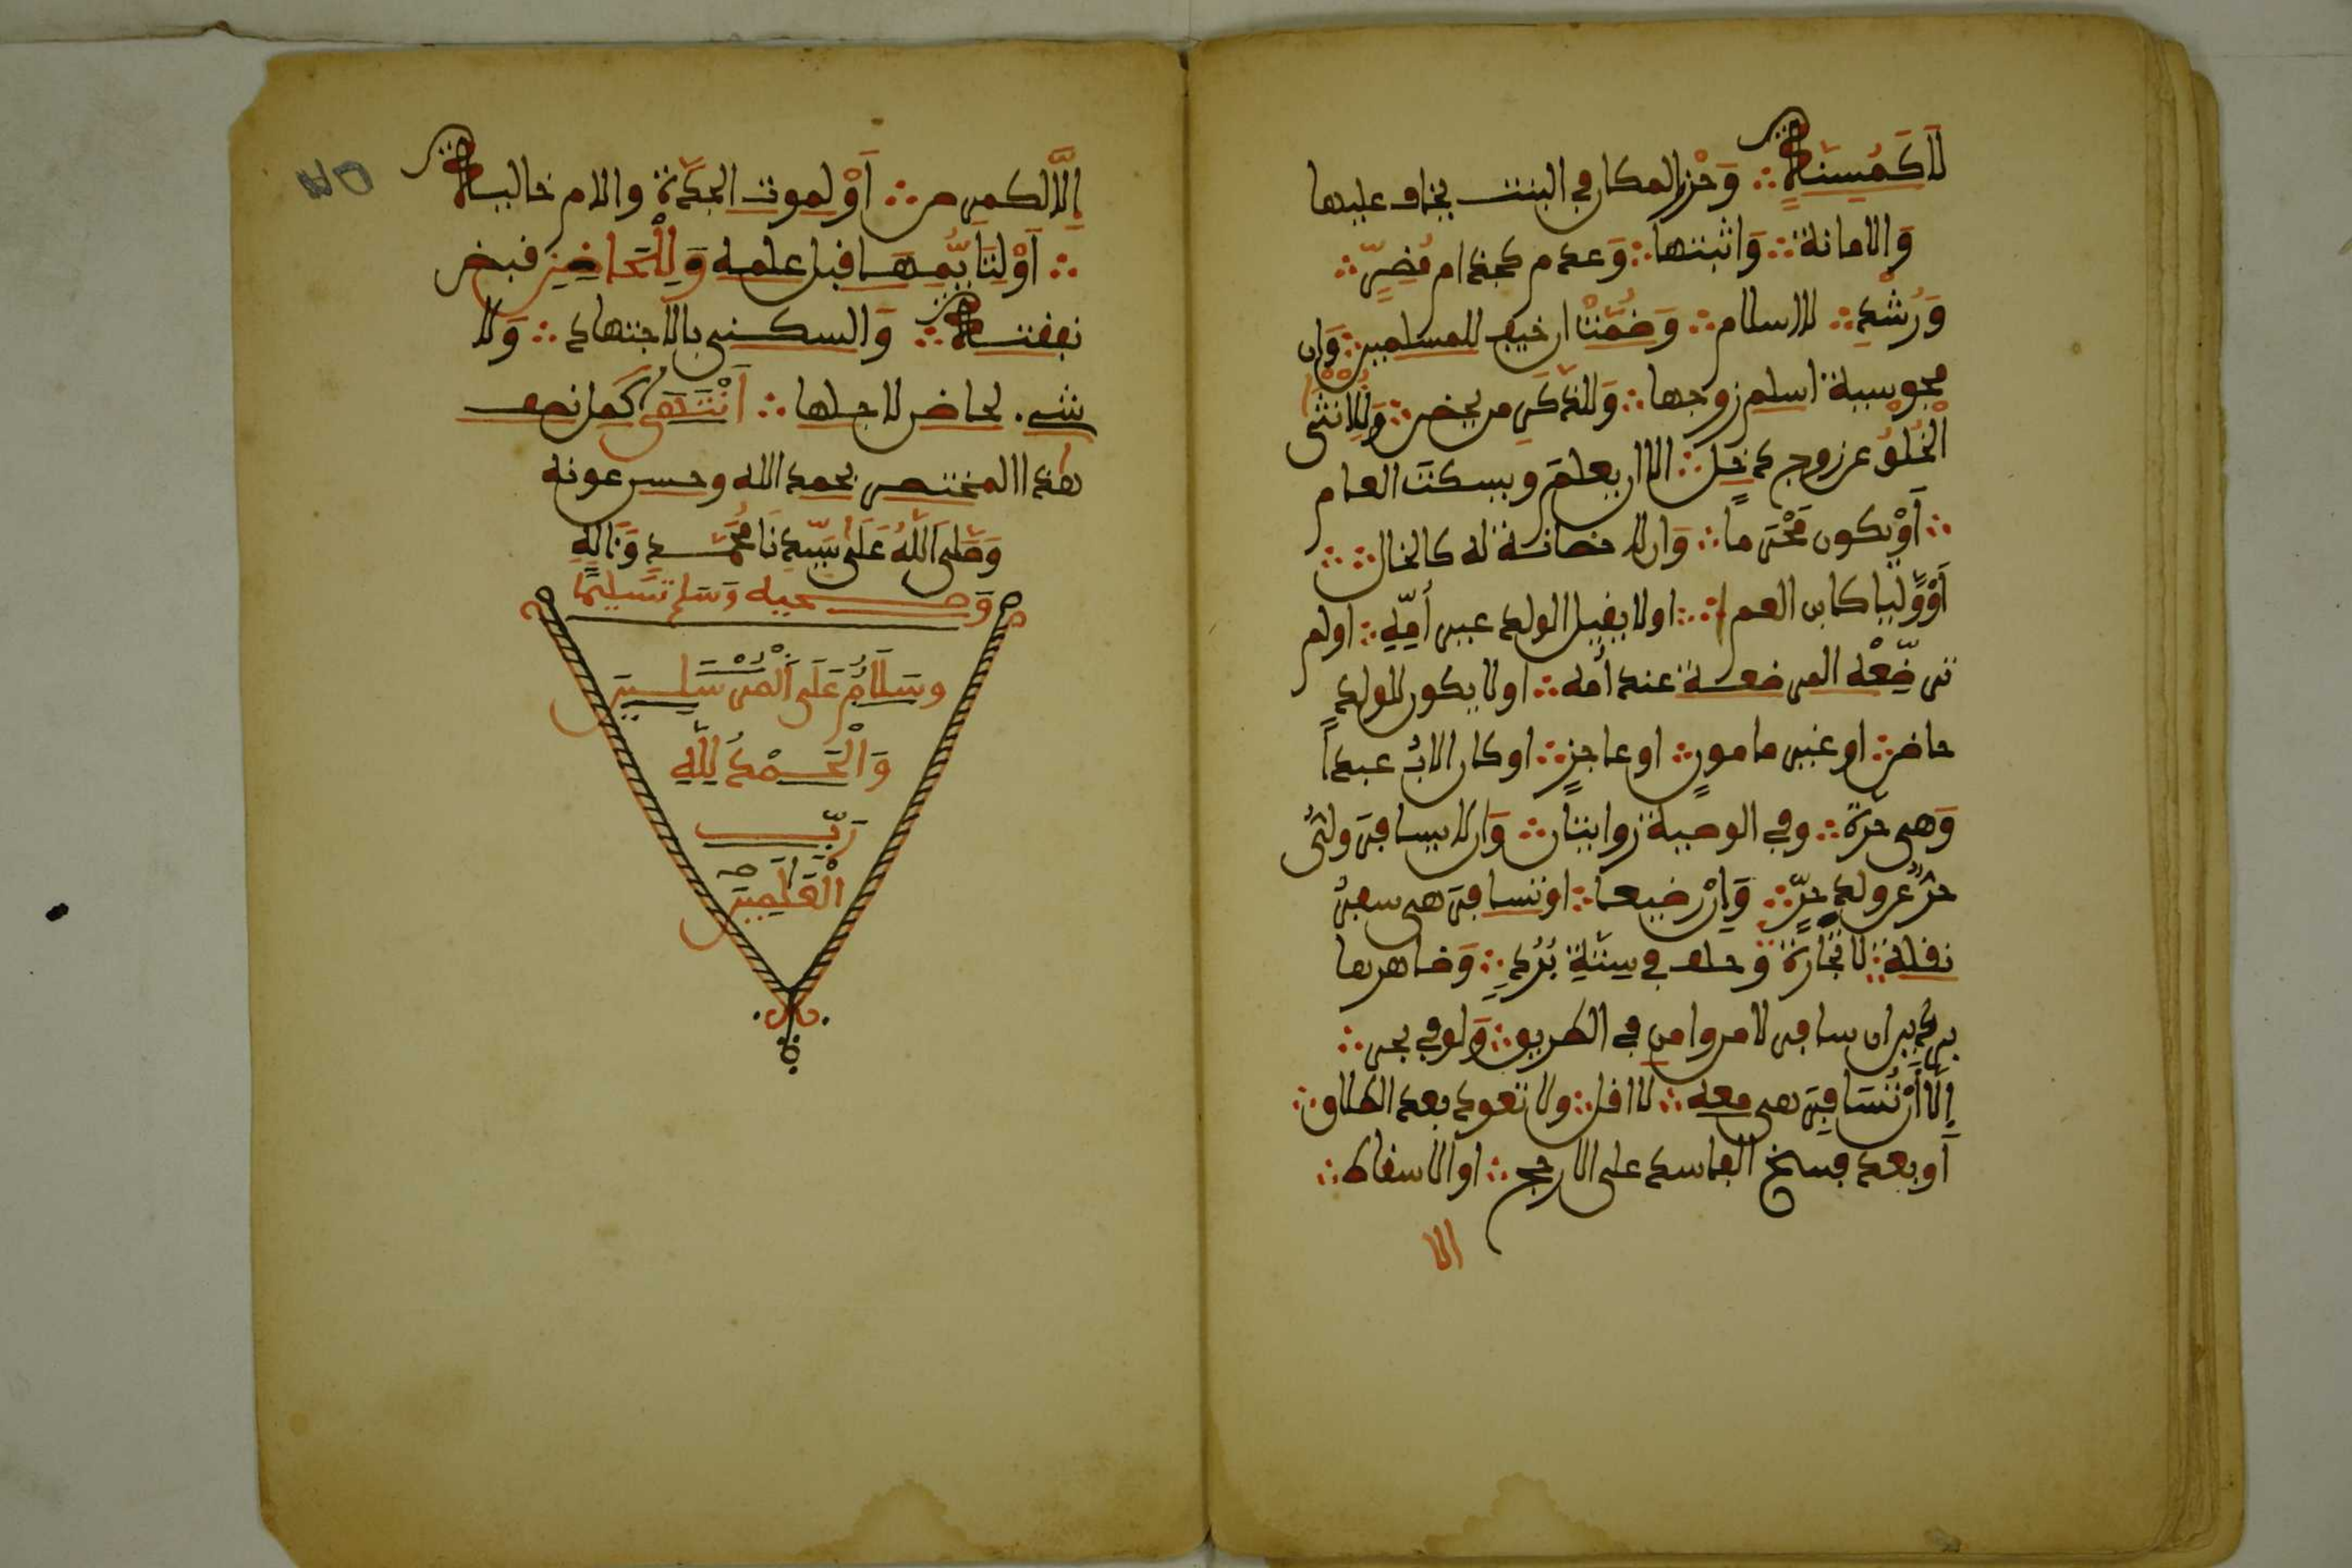 لَا كَمُسِنَةٍ وَحْزر المكان في البنت يخاف عليها
وَالامانة وَاثبتها وَعدم كجذام مُضِرٍّ
وَرُشْدٍ لا اسلام وَضُمَّتْ ان خيف للمسلمين وَإن
مجوسية اسلم زوجها وَللذكَرِ من يحضن وَلِلانثَى
الْخُلُوُّ عن زوج دخل الا ان يعلمَ ويسكتَ العام
أَوْ يكون مَحْرَما وَان لا حضانة له كالخال
أَوْ وَّليا كابن العم اولا يقبل الولد غير أمِّهِ اولم
ترضِّعْه المرضعة عند أمه اولا يكون للولد
حاضن او غير مامونٍ او عاجزٍ او كان الابُ عبداً
وَهي حرة وفي الوصية روايتان وَان لا يسافرَ وليُّ
حرٌّ عن ولدٍ حرٍّ وَإِنْ رضيعا او تسافرَ هي سفرَ
نقلة لا تجَارة وحلف في سِتَّةِ بُرُدٍ وَضاهرها
بريدين ان سافر لامن وامِنَ في الطريق وَلو في بحر
إِلَّا أَنْ تُسَافِرَ هي معه لا اقل ولا تعود بعد الطلاق
أو بعد فسخ الفاسد على الارجح او الاسقاط
الا
إِلَّا لكمرض أَوْ لموت الجدَّة والام خالية
أَوْ لتَايُّمِهَا قبل علمه وَلِلْحَاضِنِ قبض
نفقته وَالسكنى بالاجتهاد وَلا
شيء لحاضن لاجلها اَنْتَهَى كَمل نصف
هذا المختصر بحمد الله وحسن عونه
وَصَلى اَللَّهُ عَلَى سَيِّدِنَا مُحَمَّدٍ وَءَالِهِ
وَصحبه وَسَلم تَسْلِيما
وسَلَامٌ عَلَى اَلْمُرْسَلِينَ
وَالْحَمْدُ لِلَّهِ
رَبِّ
الْعَالَمِينَ